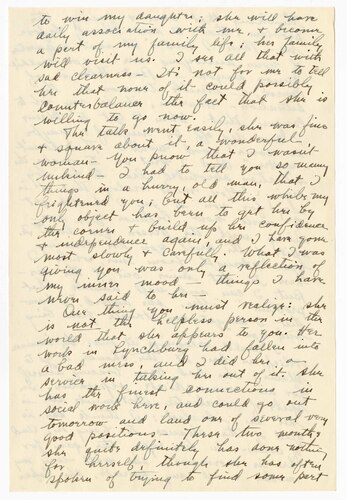 to win my daughter; she will have
daily association with me, & become
a part of my family life; her family
will visit us. I see all that with
sad clearness – It's not for me to tell
her that none of it could possibly
counterbalance the fact that she is
willing to go now.
The talk went easily, she was fine
& square about it, a wonderful
woman – You know that I wasn't
unkind – I had to tell you so many
things in a hurry, old man, that I
frightened you; but all this while my
only object has been to get her by
the corner & build up her confidence
& independence again, and I have gone
most slowly & carefully. What I was
giving you was only a reflection of
my inner mood – things I have
never said to her –
One thing you must realize: she
is not the helpless person in the
world that she appears to you. Her
work in Lynchburg had fallen into
a bad mess, and I did her a
service in taking her out of it. She
has the finest connections in
social work here, and could go out
tomorrow and land one of several very
good positions – These two months
she quite definitely has done nothing
for herself, though she has often
spoken of trying to find some part